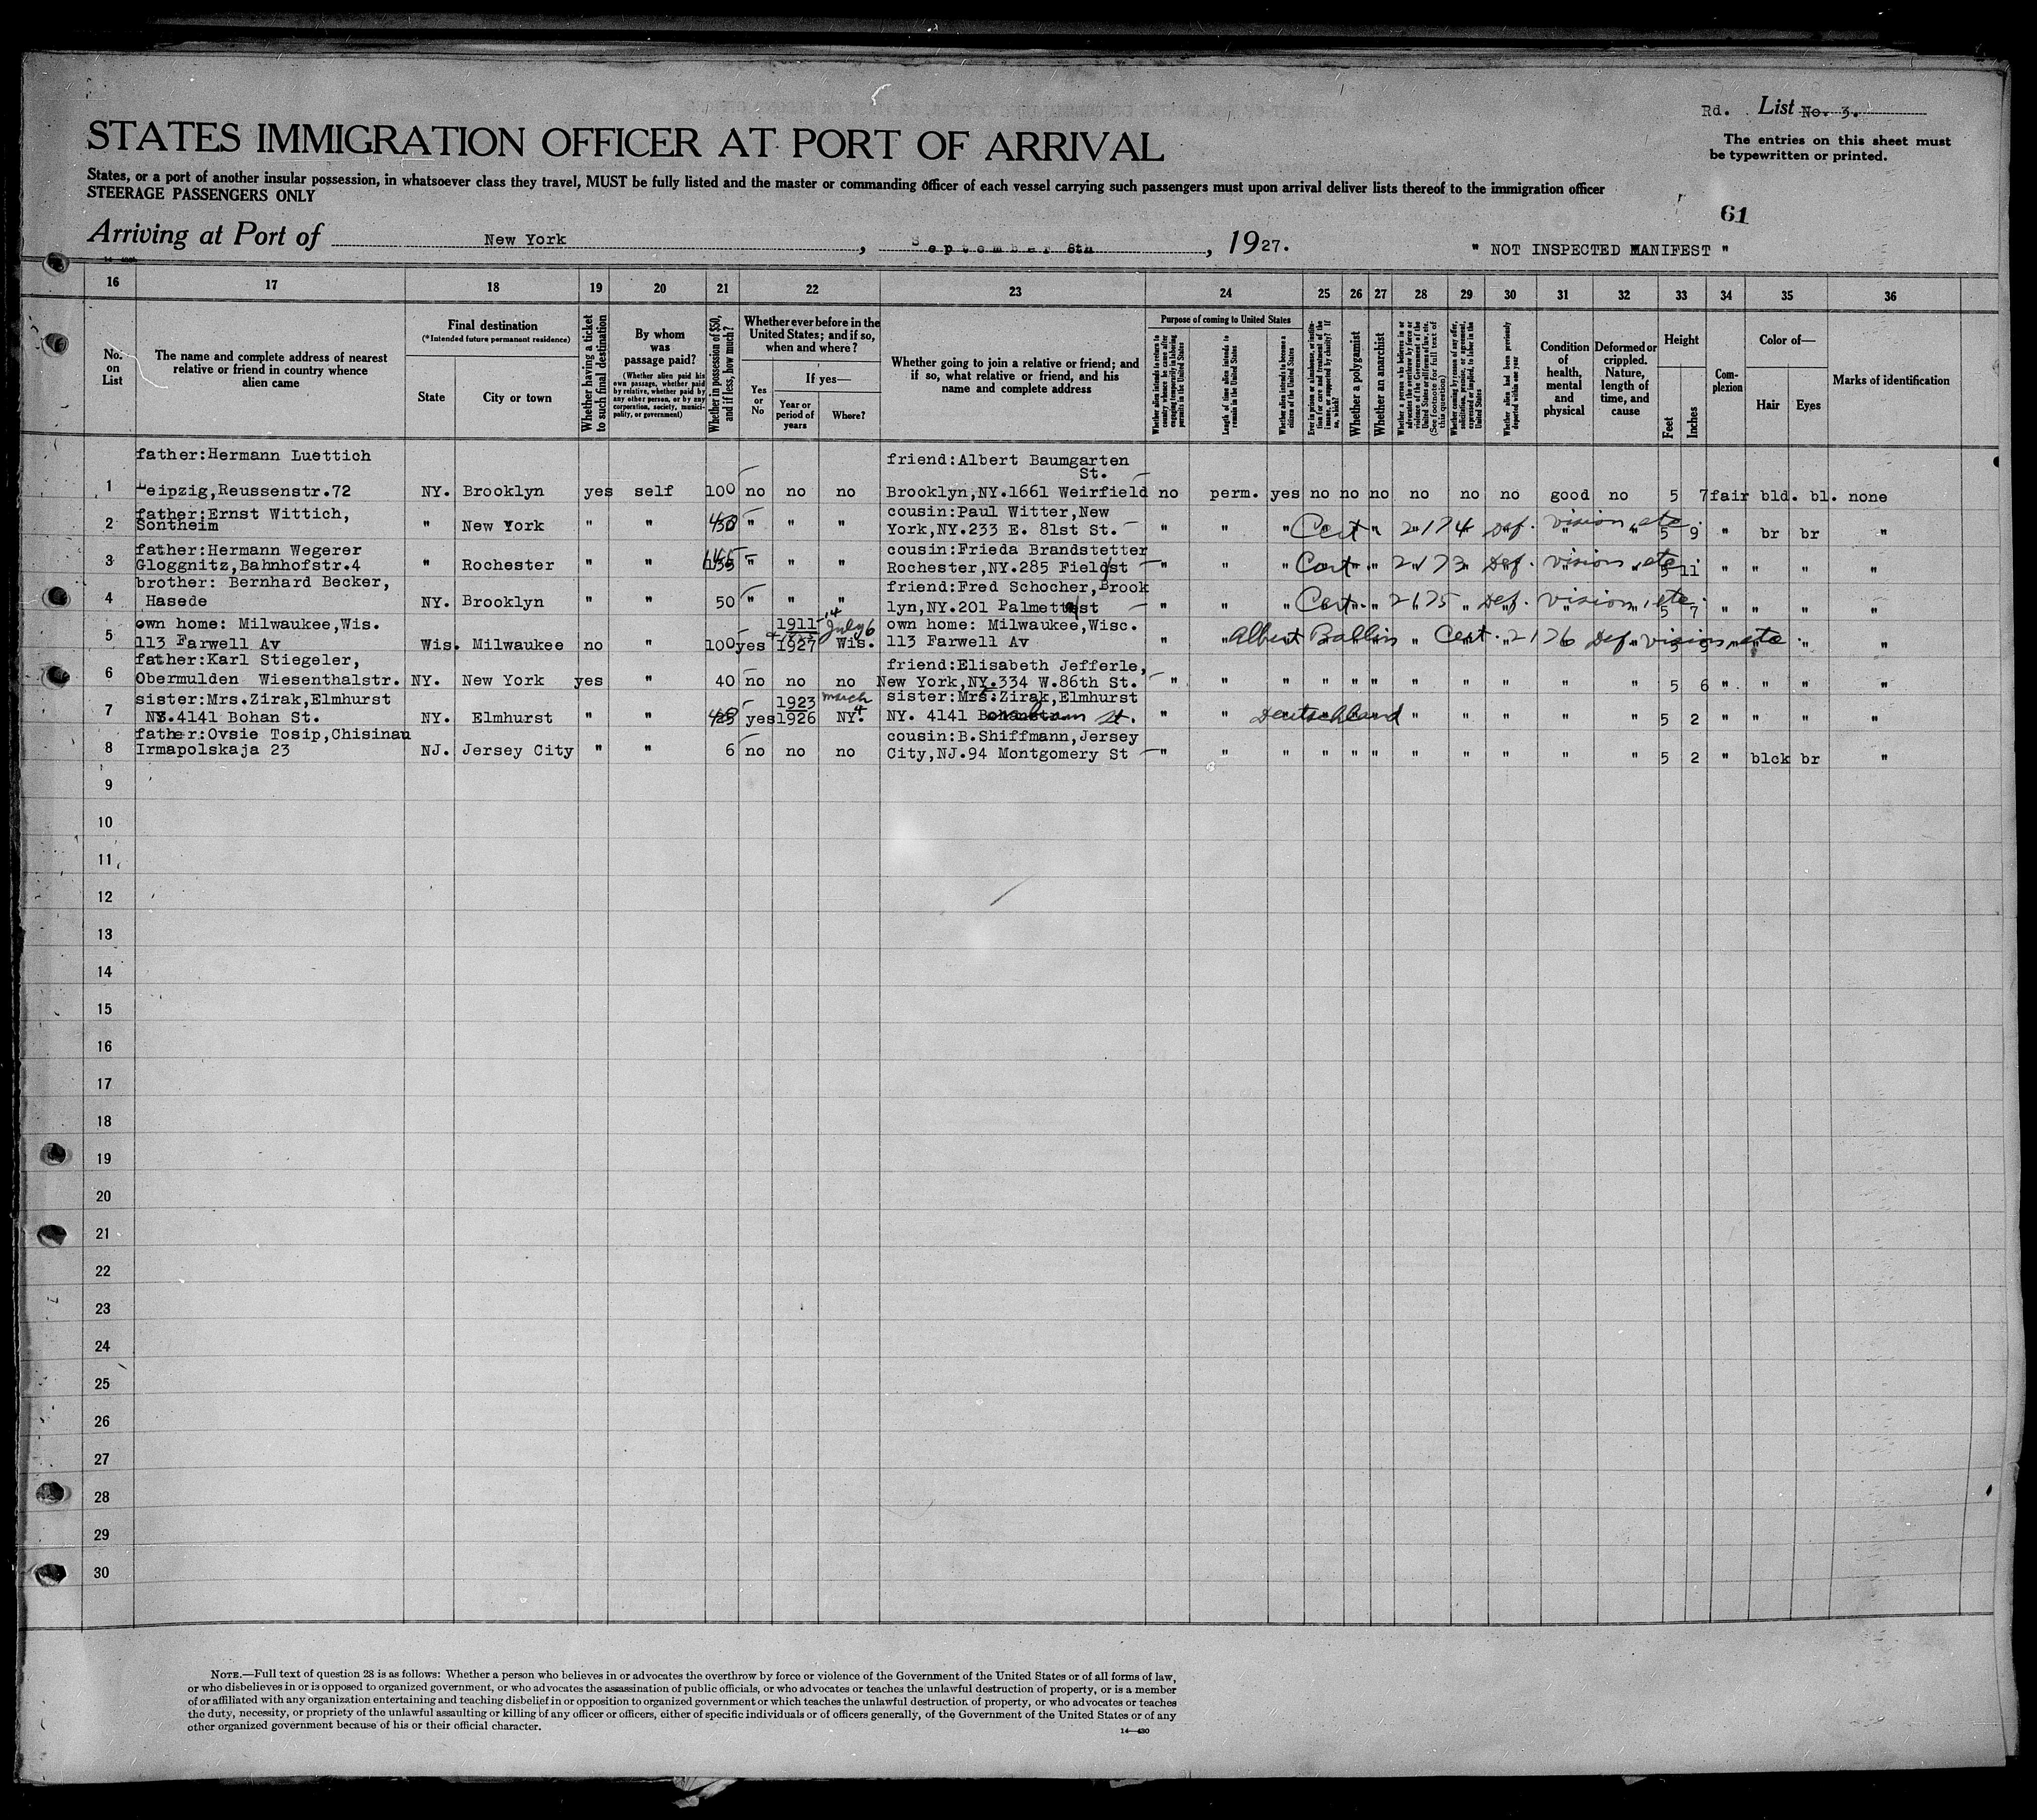 Rd. List No. 3.
STATES IMMIGRATION OFFICER AT PORT OF ARRIVAL
The entries on this sheet must
be typewritten or printed.
States, or a port of another insular possession, in whatsoever class they travel, MUST be fully listed and the master or commanding officer of each vessel carrying such passengers must upon arrival deliver lists thereof to the immigration officer
STEERAGE PASSENGERS ONLY
61
Arriving at Port of New York, September 6th, 1927.
" NOT INSPECTED MANIFEST "
16 17 18 19 20 21 22 23 24 25 26 27 28 29 30 31 32 33 34 35 36
No. on List
The name and complete address of nearest relative or friend in country whence alien came
Final destination
(*Intended future permanent residence)
State
City or town
Whether having a ticket to such final destination
By whom was passage paid?
(Whether alien paid his own passage, whether paid by relative, whether paid by any other person, or by any corporation, society, municipality, or government)
Whether in possession of $50, and if less, how much?
Whether ever before in the United States; and if so, when and where?
Yes or No
If yes—
Year or period of years
Where?
Whether going to join a relative or friend; and if so, what relative or friend, and his name and complete address
Purpose of coming to United States
Whether alien intends to return to country whence he came after engaging temporarily in laboring pursuits in the United States
Length of time alien intends to remain in the United States
Whether alien intends to become a citizen of the United States
Ever in prison or almshouse, or institution for care and treatment of the insane, or supported by charity? If so, which?
Whether a polygamist
Whether an anarchist
(See footnote for full text of this question)
Whether coming by reason of any offer, solicitation, promise, or agreement, expressed or implied, to labor in the United States
Whether alien had been previously deported within one year
Condition of health, mental and physical
Deformed or crippled. Nature, length of time, and cause
Height
Feet
Inches
Complexion
Color of—
Hair
Eyes
Marks of identification
father:Hermann Luettich friend:Albert Baumgarten
St.
1 Leipzig,Reussenstr.72 NY. Brooklyn yes self 100 no no no Brooklyn,NY.1661 Weirfield no perm. yes no no no no no no good no 5 7 fair bld. bl. none
father:Ernst Wittich, cousin:Paul Witter,New
2 Sontheim " New York " " " " " York,NY.233 E. 81st St. " " " Cert " 2174 Def. vision etc 5 9 " br br "
father:Hermann Wegerer cousin:Frieda Brandstetter
3 Gloggnitz,Bahnhofstr.4 " Rochester " " " " " Rochester,NY.285 Field st " " " Cert " 2173 Def. vision etc 5 11 " " " "
brother: Bernhard Becker, friend:Fred Schocher,Brook
4 Hasede NY. Brooklyn " " 50 " " " lyn,NY.201 Palmetto st " " " Cert. " 2175 Def. vision, etc 5 7 " " " "
own home: Milwaukee,Wis. 1911-14 July 6 own home: Milwaukee,Wisc.
5 113 Farwell Av Wis. Milwaukee no " 100 yes 1927 Wis. 113 Farwell Av " " Albert Ballin Cert. 2176 Def. vision etc " "
father:Karl Stiegeler, friend:Elisabeth Jefferle,
6 Obermulden Wiesenthalstr. NY. New York yes " 40 no no no New York,NY.334 W.86th St. " " " " " " " " " " " 5 6 " " " "
sister:Mrs.Zirak,Elmhurst 1923 March 4 sister:Mrs:Zirak,Elmhurst
7 NY.4141 Bohan St. NY. Elmhurst " " yes 1926 NY. NY. 4141 St. " " Deutschland " " " " " 5 2 " " " "
father:Ovsie Tosip,Chisinau cousin:B.Shiffmann,Jersey
8 Irmapolskaja 23 NJ. Jersey City " " 6 no no no City,NJ.94 Montgomery St " " " " " " " " " " " 5 2 " blck br "
9
10
11
12
13
14
15
16
17
18
19
20
21
22
23
24
25
26
27
28
29
30
NOTE.—Full text of question 28 is as follows: Whether a person who believes in or advocates the overthrow by force or violence of the Government of the United States or of all forms of law,
or who disbelieves in or is opposed to organized government, or who advocates the assassination of public officials, or who advocates or teaches the unlawful destruction of property, or is a member
of or affiliated with any organization entertaining and teaching disbelief in or opposition to organized government or which teaches the unlawful destruction of property, or who advocates or teaches
the duty, necessity, or propriety of the unlawful assaulting or killing of any officer or officers, either of specific individuals or of officers generally, of the Government of the United States or of any
other organized government because of his or their official character.
14—430